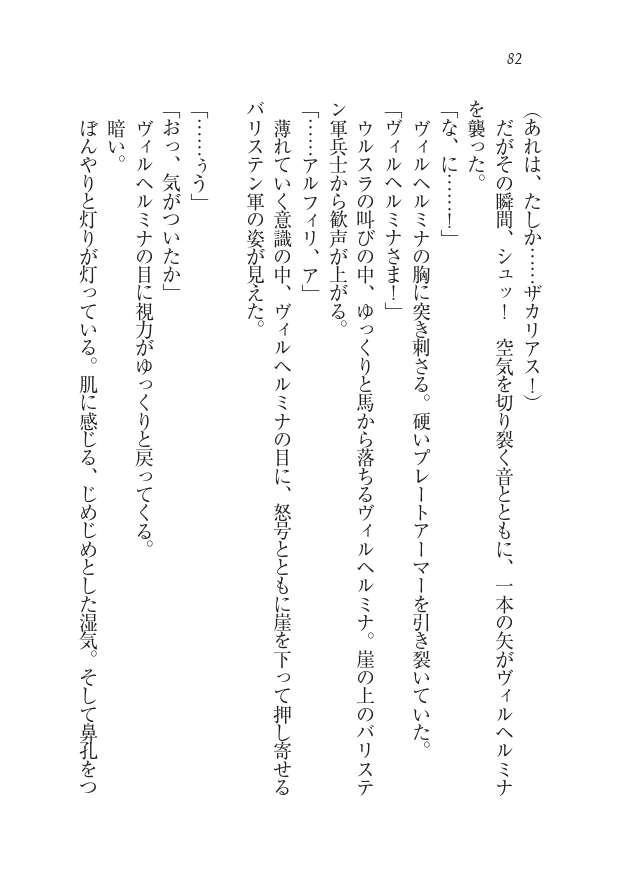 82
(あれは、たしか……ザカリアス！)
　だがその瞬間、シュッ！　空気を切り裂く音とともに、一本の矢がヴィルヘルミナ
を襲った。
「な、に……！」
　ヴィルヘルミナの胸に突き刺さる。硬いプレートアーマーを引き裂いていた。
「ヴィルヘルミナさま！」
　ウルスラの叫びの中、ゆっくりと馬から落ちるヴィルヘルミナ。崖の上のバリステ
ン軍兵士から歓声が上がる。
「……アルフィリ、ア」
　薄れていく意識の中、ヴィルヘルミナの目に、怒号とともに崖を下って押し寄せる
バリステン軍の姿が見えた。
「……ぅう」
「おっ、気がついたか」
　ヴィルヘルミナの目に視力がゆっくりと戻ってくる。
　暗い。
　ぼんやりと灯りが灯っている。肌に感じる、じめじめとした湿気。そして鼻孔をつ